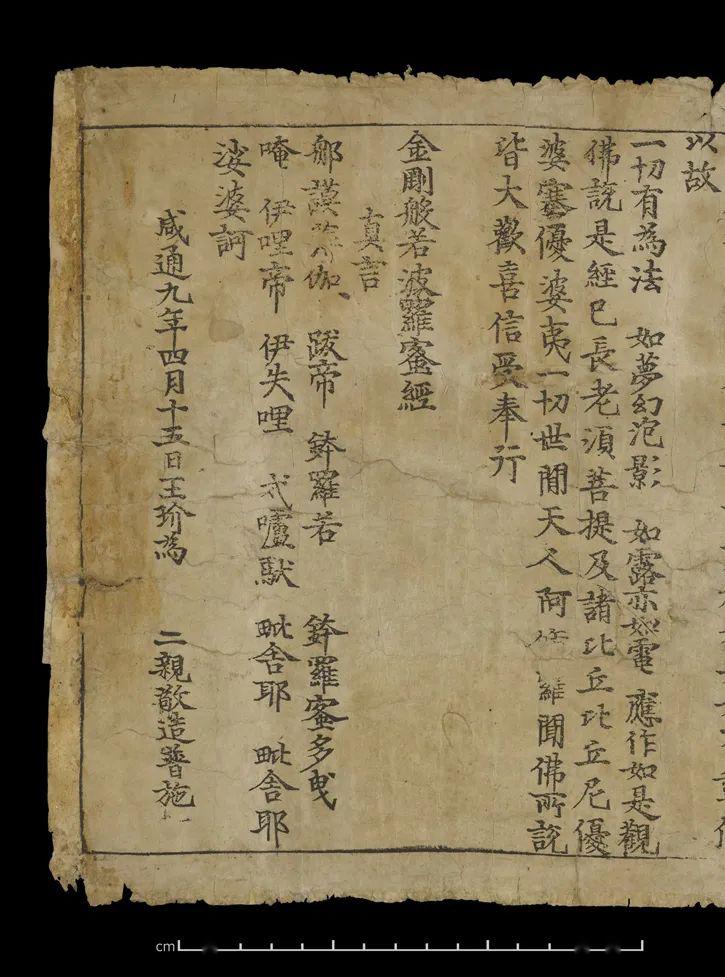 以故
一切有為法 如夢幻泡影 如露亦如電 應作如是觀
佛說是經已長老須菩提及諸比丘比丘尼優
婆塞優婆夷一切世間天人阿修羅聞佛所說
皆大歡喜信受奉行
金剛般若波羅蜜經
真言
那謨 伽 跋帝 鉢羅若 鉢羅蜜多曳
唵 伊哩帝 伊失哩 戍嚧馱 毗舍耶 毗舍耶
娑婆訶
咸通九年四月十五日王玠為 二親敬造普施
cm